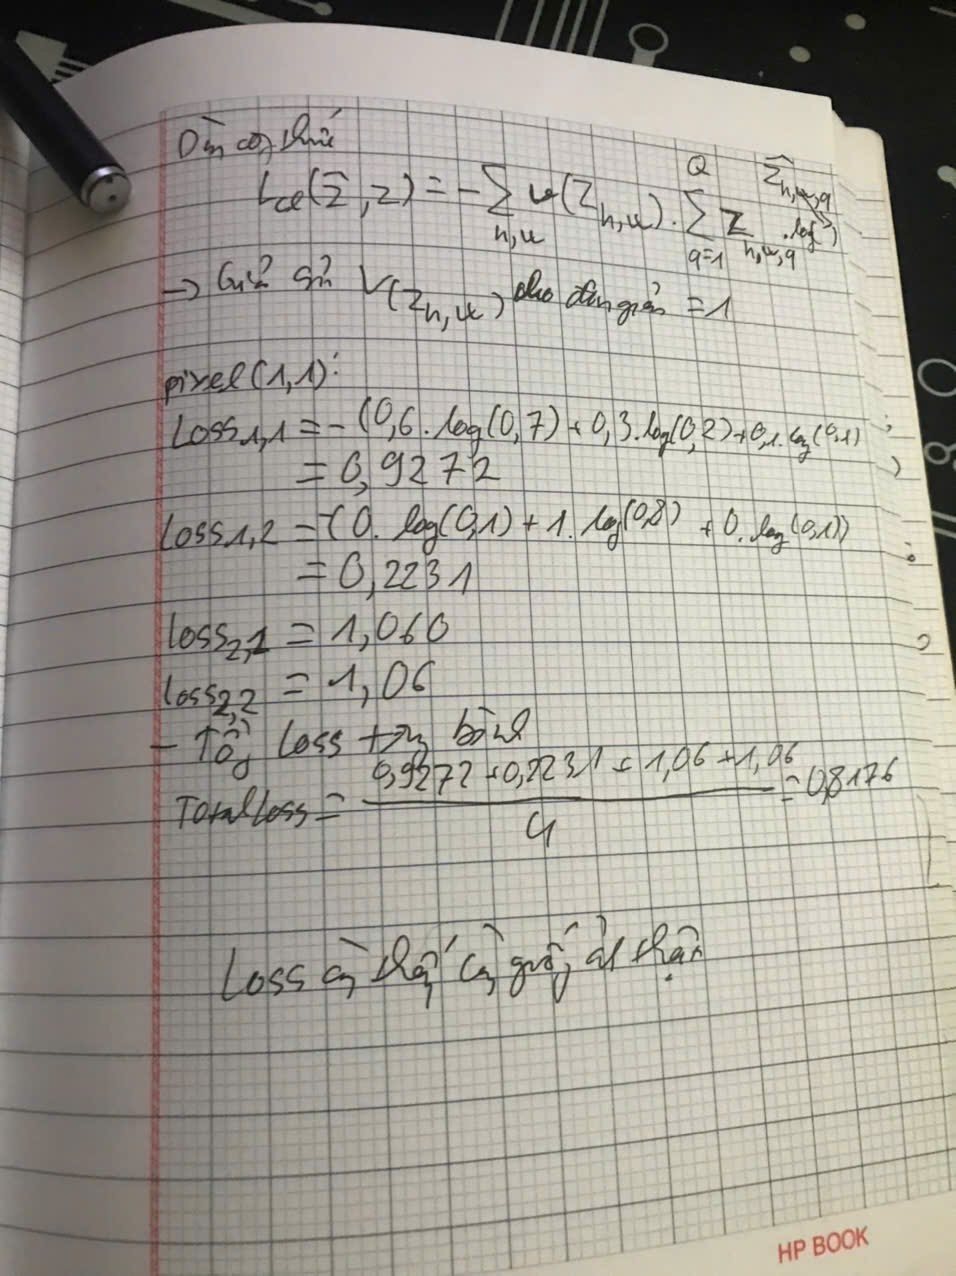 Dùng công thức
L_cl(Ẑ, Z) = - Σ_{h,w} v(Z_{h,w}) . Σ_{q=1}^{Q} Z_{h,w,q} . log(Ẑ_{h,w,q})
→ Giả sử V(Z_{h,w}) cho đơn giản = 1
pixel(1,1):
Loss_{1,1} = - (0,6 . log(0,7) + 0,3 . log(0,2) + 0,1 . log(0,1)
= 0,9272
Loss_{1,2} = -(0. log(0,1) + 1. log(0,8) + 0. log(0,1))
= 0,2231
Loss_{2,1} = 1,060
Loss_{2,2} = 1,06
- Tổng Loss trung bình
Total Loss = (0,9272 + 0,2231 + 1,06 + 1,06) / 4 = 0,8176
Loss càng thấp càng giống ảnh thật
HP BOOK